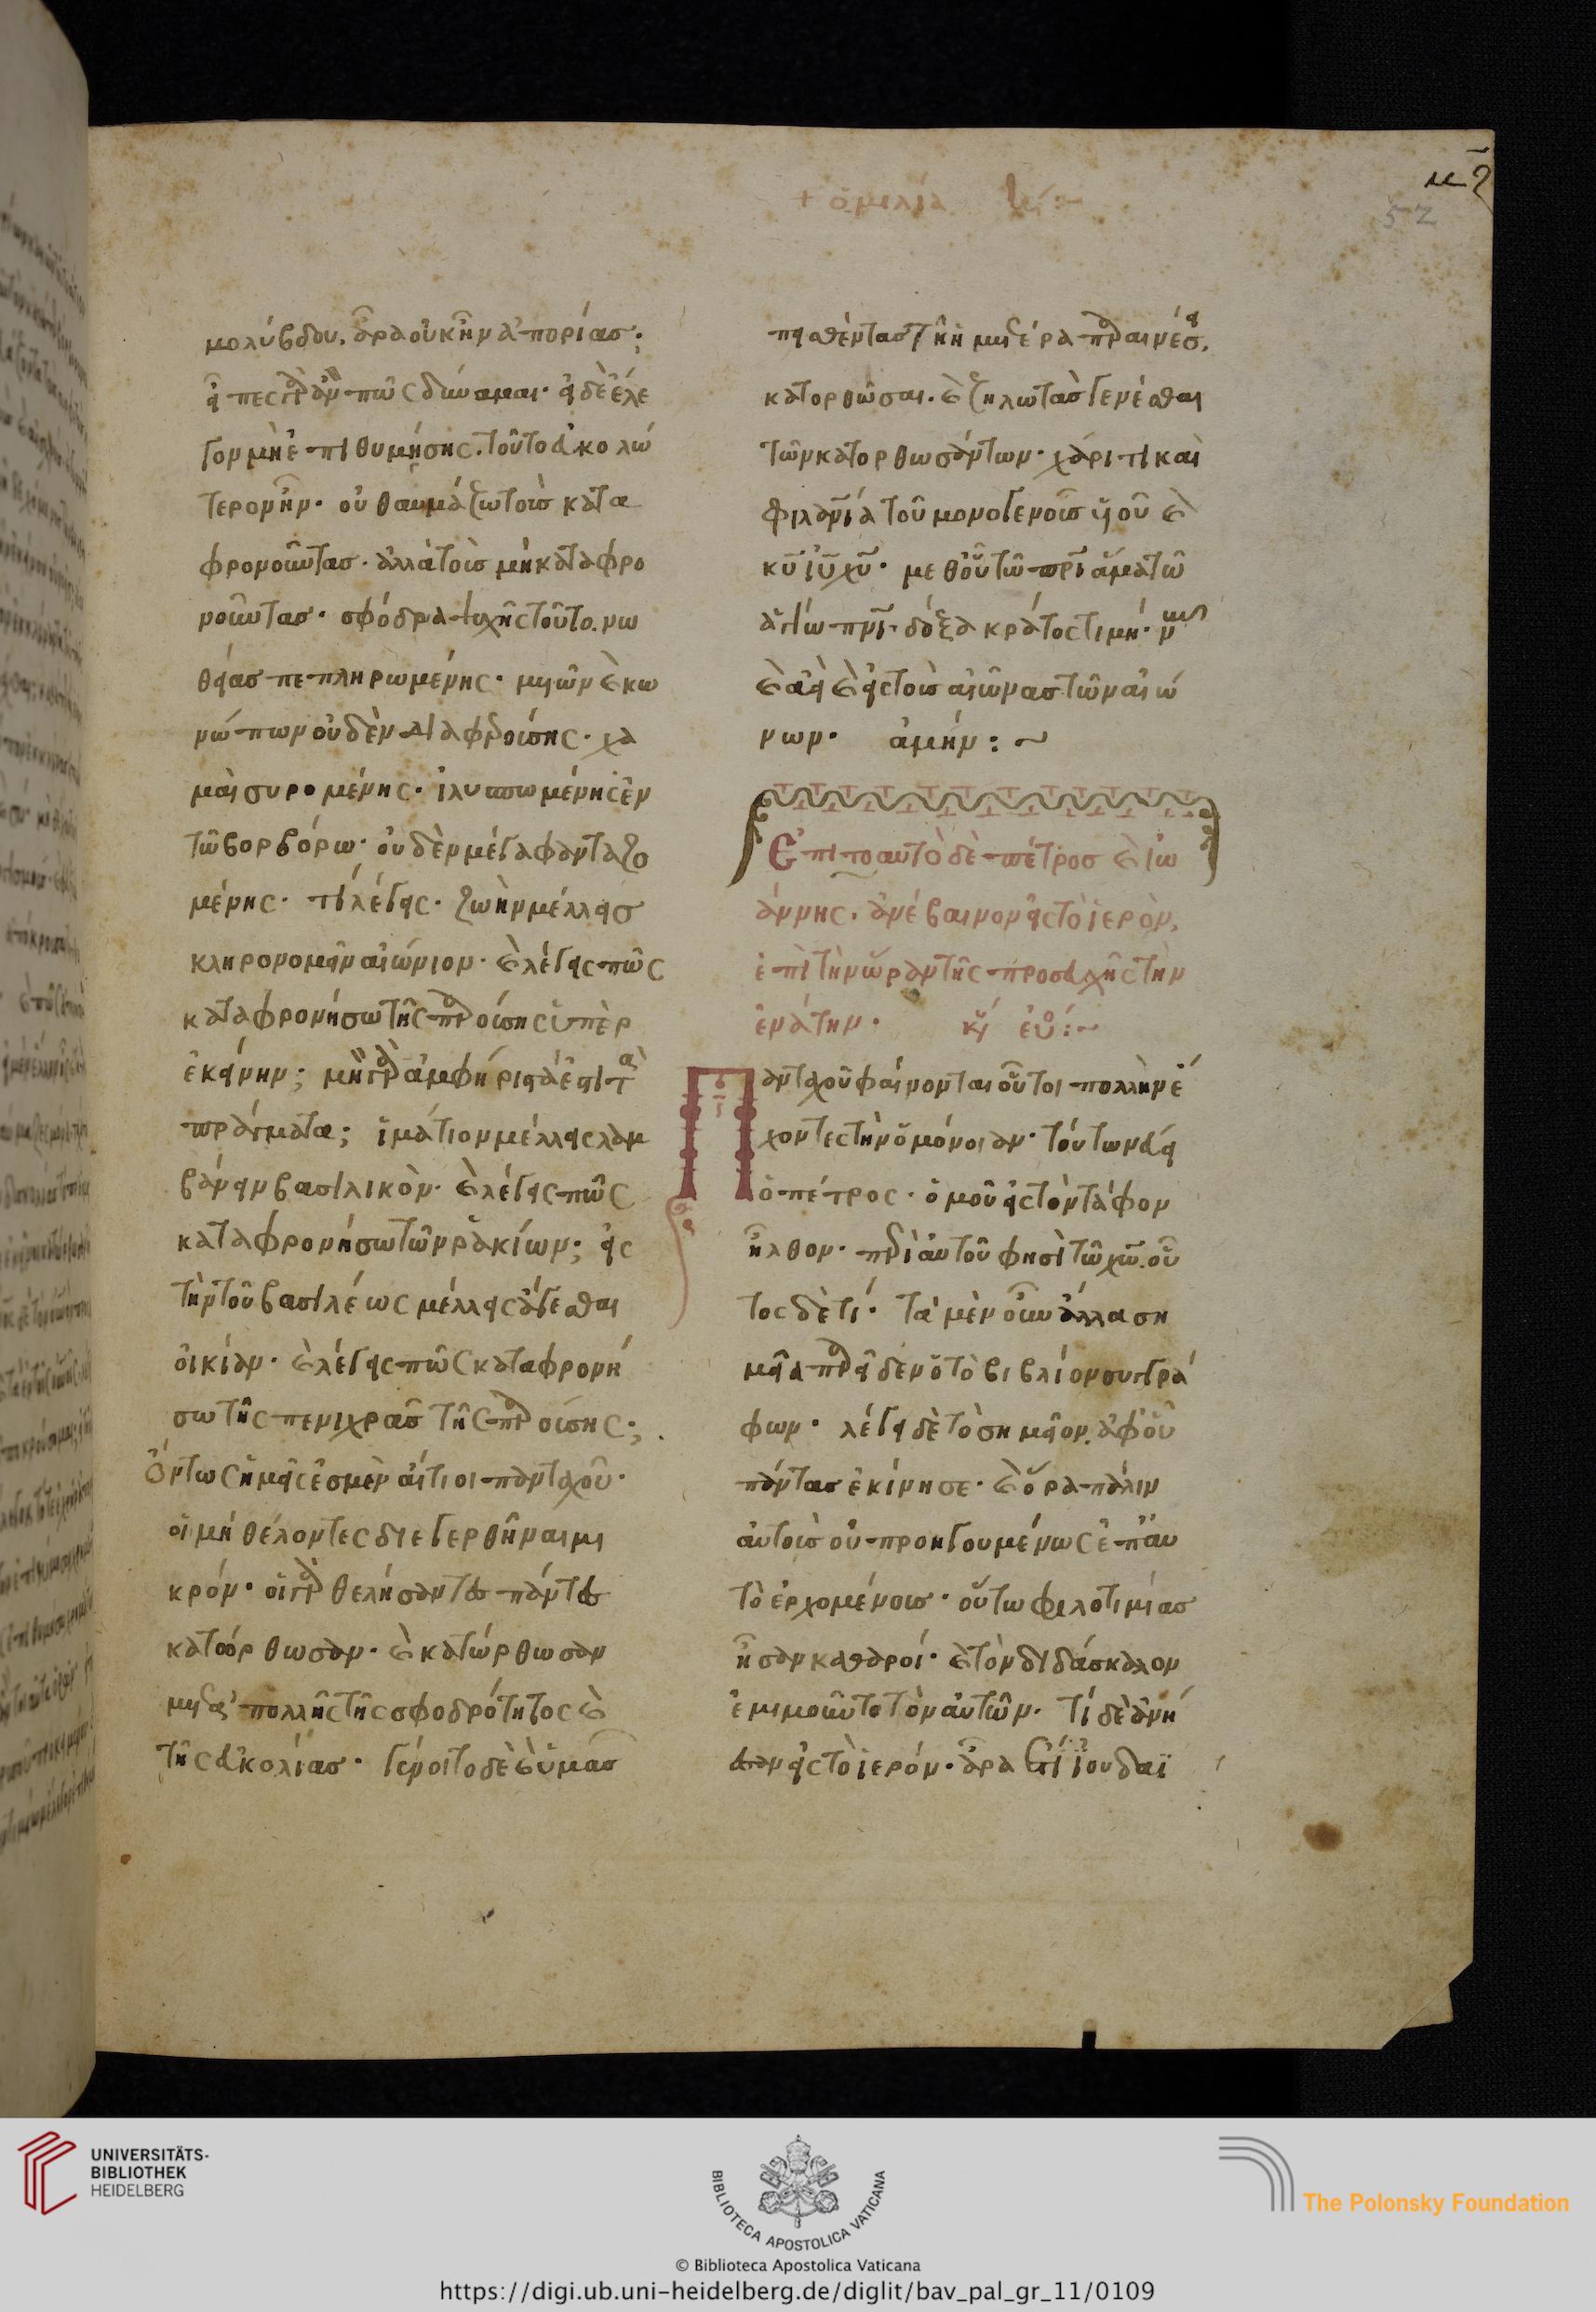 μϛ
52
+ ὁμιλία
μολύβδου. ἆρα οὐκ ἦν ἀπορίας;
εἶπες γὰρ ἂν πῶς δύναμαι· εἰ δὲ ἔλε
γον μὴ ἐπιθυμήσης. τοῦτο δυσκολώ
τερον ἦν· οὐ θαυμάζω τοὺς κατα
φρονοῦντας· ἀλλὰ τοὺς μὴ καταφρο
νοῦντας· σφόδρα ψυχῆς τοῦτο. νω
θείας πεπληρωμένης· μυιῶν καὶ κω
νώπων οὐδὲν διαφερούσης· χα
μαὶ συρομένης· ἰλυσπωμένης ἐν
τῶ βορβόρω· οὐδὲν μέγα φανταζο
μένης· τί λέγεις· ζωὴν μέλλεις
κληρονομεῖν αἰώνιον· καὶ λέγεις πῶς
καταφρονήσω τῆς παρούσης ὑπὲρ
ἐκείνην; μὴ γὰρ ἀμφήριστά ἐστι τὰ
πράγματα; ἱμάτιον μέλλεις λαμ
βάνειν βασιλικὸν· καὶ λέγεις πῶς
καταφρονήσω τῶν ῥακίων; εἰς
τὴν τοῦ βασιλέως μέλλεις ἄγεσθαι
οἰκίαν· καὶ λέγεις πῶς καταφρονή
σω τῆς πενιχρᾶς τῆς παρούσης;
Ὄντως ἡμεῖς ἐσμὲν αἴτιοι πανταχοῦ·
οἱ μὴ θέλοντες διεγερθῆναι μι
κρόν· οἱ γὰρ θελήσαντες πάντες
κατώρθωσαν· καὶ κατώρθωσαν
μετὰ πολλῆς τῆς σφοδρότητος καὶ
τῆς εὐκολίας· γένοιτο δὲ καὶ ὑμᾶς
πεισθέντας τῆ ἡμετέρα παραινέσει.
κατορθῶσαι. καὶ ζηλωτὰς γενέσθαι
τῶν κατορθωσάντων· χάριτι καὶ
φιλανία τοῦ μονογενοῦς υἱοῦ καὶ
κυ ιυ χυ· μεθ οὗ τῶ πρι ἅμα τῶ
ἁγίω πνι· δόξα κράτος τιμή· νῦν
καὶ ἀεὶ καὶ εἰς τοὺς αἰῶνας τῶν αἰώ
νων· ἀμήν: ~
Ἐπιτοαυτὸ δὲ πέτρος καὶ ἰω
άννης. ἀνέβαινον εἰς τὸ ἱερὸν.
ἐπὶ τὴν ὥραν τῆς προσευχῆς τὴν
ἐνάτην·
Πανταχοῦ φαίνονται οὗτοι πολλὴν ἔ
χοντες τὴν ὁμόνοιαν· τούτω νεύει
ὁ πέτρος· ὁμοῦ εἰς τὸν τάφον
ἦλθον· περὶ αὐτοῦ φησὶ τῶ χω. οὗ
τος δὲ τί· τὰ μὲν οὖν ἄλλα ση
μεῖα παρεῖδεν ὁ τὸ βιβλίον συγγρά
φων· λέγει δὲ τὸ σημεῖον. ἀφ' οὗ
πάντας ἐκίνησε· καὶ ὅρα πάλιν
αὐτοὺς οὐ προηγουμένως ἐπ' αὐ
τὸ ἐρχομένους· οὕτω φιλοτιμίας
ἦσαν καθαροί· καὶ τὸν διδάσκαλον
ἐμιμοῦντο τὸν αὐτῶν· τί δὲ ἀνή
εσαν εἰς τὸ ἱερόν· ἆρα ἔτι ἰουδαϊ
UNIVERSITÄTS-
BIBLIOTHEK
HEIDELBERG
BIBLIOTECA APOSTOLICA VATICANA
The Polonsky Foundation
© Biblioteca Apostolica Vaticana
https://digi.ub.uni-heidelberg.de/diglit/bav_pal_gr_11/0109